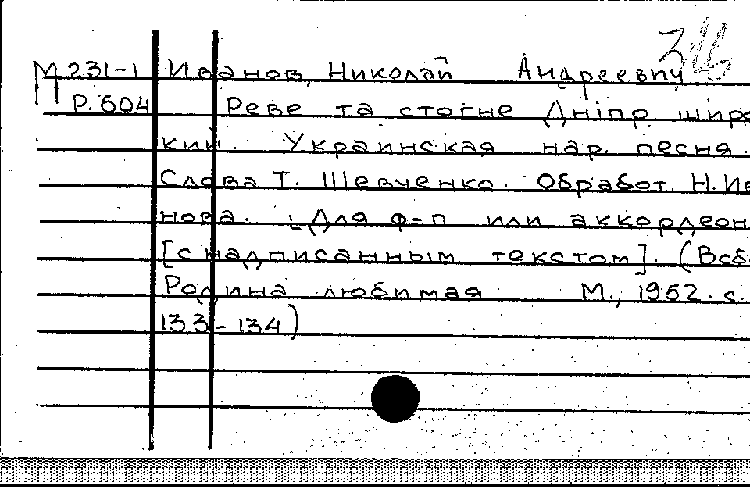 М 231-1 Иванов, Николай Андреевич
Р.604 Реве та стогне Дніпр широ
кий. Украинская нар. песня.
Слова Т. Шевченко. Обработ. Н. Ива
нова. Для ф-п или аккордеон
[с надписанным текстом]. (В сб.
Родина любимая М., 1952. с.
133-134)